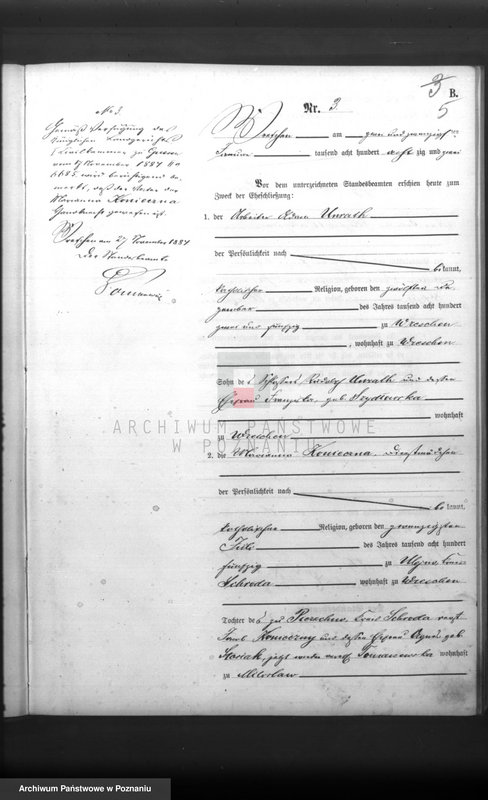 No 3
Gemäß Verfügung des
Königlichen Landgerichts
Civilkammer zu Gnesen
vom November 1884
wird berichtigend
daß der Vater der
Marianna Konieczna
gewesen ist.
Wreschen am 27 November 1884
Der Standesbeamte
3
B.
5
Nr. 3.
Wreschen am zwei und zwanzigsten
Januar tausend acht hundert achtzig und zwei
Vor dem unterzeichneten Standesbeamten erschien heute zum
Zweck der Eheschließung:
1. der Arbeiter Adam Unrath
der Persönlichkeit nach
bekannt,
katholischer Religion, geboren den zwölften De
zember des Jahres tausend acht hundert
zwei und fünfzig zu Wreschen
, wohnhaft zu Wreschen
Sohn des Schlossers Rudolf Unrath und dessen
Ehefrau geb. Szydlowska
wohnhaft
zu Wreschen
2. die Marianna Konieczna, Dienstmädchen
der Persönlichkeit nach
bekannt,
katholischer Religion, geboren den zwanzigsten
Juli des Jahres tausend acht hundert
fünfzig zu Kreis
Schroda wohnhaft zu Wreschen
Tochter des zu Kreis Schroda verst.
Jacob Konieczny und dessen Ehefrau Agnes geb.
Stasiak, jetzt wieder verehl. Tomaszewska wohnhaft
zu Miloslaw
ARCHIWUM PAŃSTWOWE
W POZNANIU
Archiwum Państwowe w Poznaniu